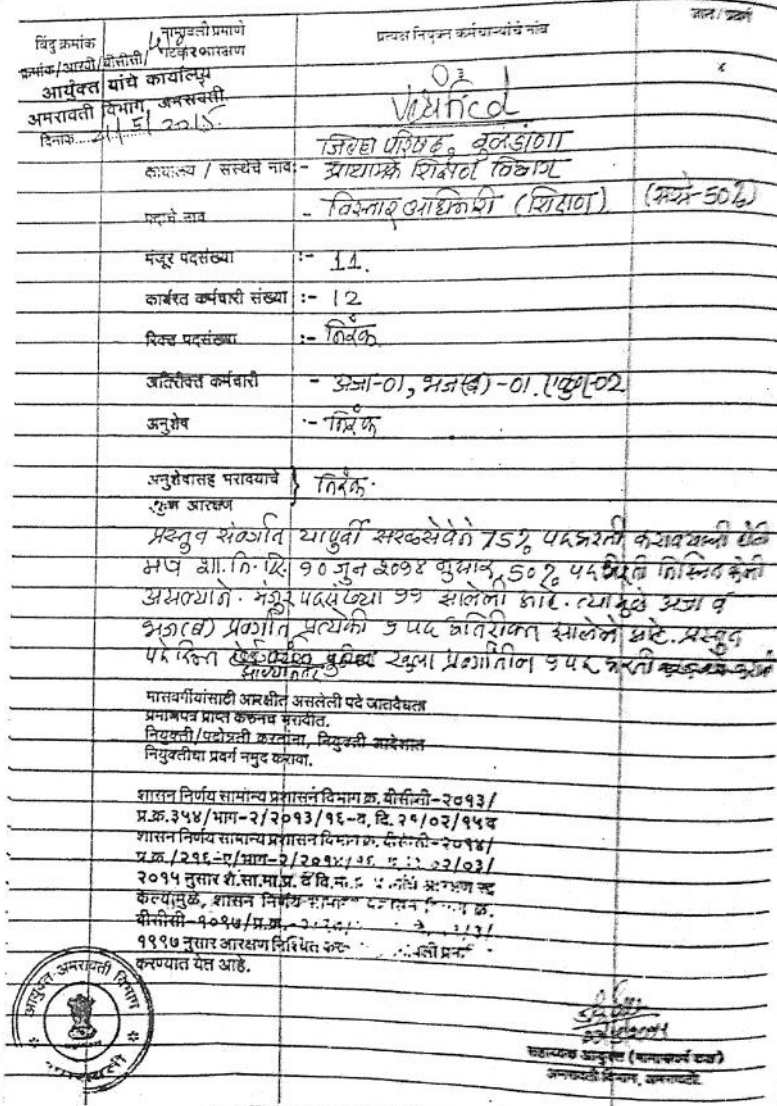 बिंदु क्रमांक
नामावलीप्रमाणे
प्रत्यक्ष नियुक्त कर्मचाऱ्यांचे नांव
क्रमांक/आरवी/बीसीसी/
आयुक्त यांचे कार्यालय
अमरावती विभाग, अमरावती.
दिनांक
03
Verified
जिल्हा परिषद, बुलडाणा
कार्यालय / संस्थेचे नाव:- प्राथामिक शिक्षण विभाग
पदाचे नाव - विस्तार अधिकारी (शिक्षण) (सरळ-50%)
मंजूर पदसंख्या :- 11.
कार्यरत कर्मचारी संख्या :- 12
रिक्त पदसंख्या :- निरंक
अतिरीक्त कर्मचारी - अजा-01, भज(ब)-01. एकुण-02
अनुशेष :- निरंक
अनुशेषासह भरावयाचे } निरंक.
एकुण आरक्षण
प्रस्तुत संवर्गात यापुर्वी सरळसेवेने 75% पदभरती
शा.नि.दि. १० जुन २०१४ नुसार, 50% पदभरती निश्चित केली
असल्याने. मंजुर पदसंख्या ११ झालेली आहे. त्यामुळे अजा व
भज(ब) प्रवर्गात प्रत्येकी १ पद अतिरीक्त झालेले आहे. प्रस्तुत
पदे रिक्त झाल्यानंतर खुला प्रवर्गातील १ पद भरती
मासवर्गीयांसाटी आरक्षीत असलेली पदे जातवैधता
प्रमाणपत्र प्राप्त करुनच भरावीत.
नियुक्ती/पदोन्नती करतांना, नियुक्ती आदेशात
नियुक्तीचा प्रवर्ग नमुद करावा.
शासन निर्णय सामान्य प्रशासन विभाग क्र. बीसीसी-२०१३/
प्र.क्र.३५४/भाग-२/२०१३/१६-व, दि. २१/०२/१५व
शासन निर्णय सामान्य प्रशासन विभाग क्र. बीसीसी-२०१४/
प्र.क्र./२१६-ए/भाग-२/२०१४/ ०२/०३/
२०१५ नुसार शै.सा.मा.प्र. व वि.मा.प्र आरक्षण रद्द
केल्यामुळे, शासन निर्णय सामान्य प्रशासन क्र.
बीसीसी-१०९७/प्र.क्र.
१९९७ नुसार आरक्षण निश्चित
करण्यात येत आहे.
आयुक्त अमरावती विभाग
अमरावती
सहाय्यक आयुक्त (मागासवर्ग कक्ष)
अमरावती विभाग, अमरावती.